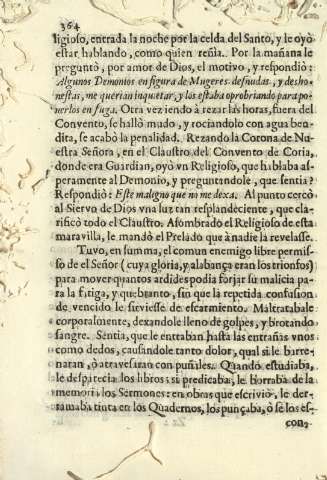 364
ligioso, entrada la noche por la celda del Santo, y le oyó
estar hablando, como quien reñia. Por la mañana le
preguntò, por amor de Dios, el motivo, y respondiò:
Algunos Demonios en figura de Mugeres desnudas, y desho-
nestas, me querian inquietar, y los estaba oprobriando para po-
nerlos en fuga. Otra vez iendo à rezar las horas, fuera del
Convento, se hallò mudo, y rociandolo con agua ben-
dita, se acabò la penalidad. Rezando la Corona de Nu-
estra Señora, en el Claustro del Convento de Coria,
donde era Guardian, oyò vn Religioso, que hablaba as-
peramente al Demonio, y preguntandole, que sentia?
Respondiò: Este maligno que no me dexa. Al punto cercò
al Siervo de Dios vna luz tan resplandeciente, que cla-
rificò todo el Claustro. Asombrado el Religioso de esta
maravilla, le mandò el Prelado que à nadie la revelasse.
Tuvo, en summa, el comun enemigo libre permis-
so de el Señor (cuya gloria, y alabança eran los trionfos)
para mover quantos ardides podia forjar su malicia pa-
ra la fatiga, y quebranto, sin que la repetida confusion
de vencido le sirviesse de escarmiento. Maltratabale
corporalmente, dexandole lleno de golpes, y brotando
sangre. Sentia, que le entraban hasta las entrañas vnos
como dedos, causandole tanto dolor, qual si le barre-
naran, ò atravesaran con puñales. Quando estudiaba,
le desparecia los libros: si predicaba, le borraba de la
memoria los Sermones: en obras que escriviò, le der-
ramaba tinta en los Quadernos, los punçaba, ò se los es-
con-